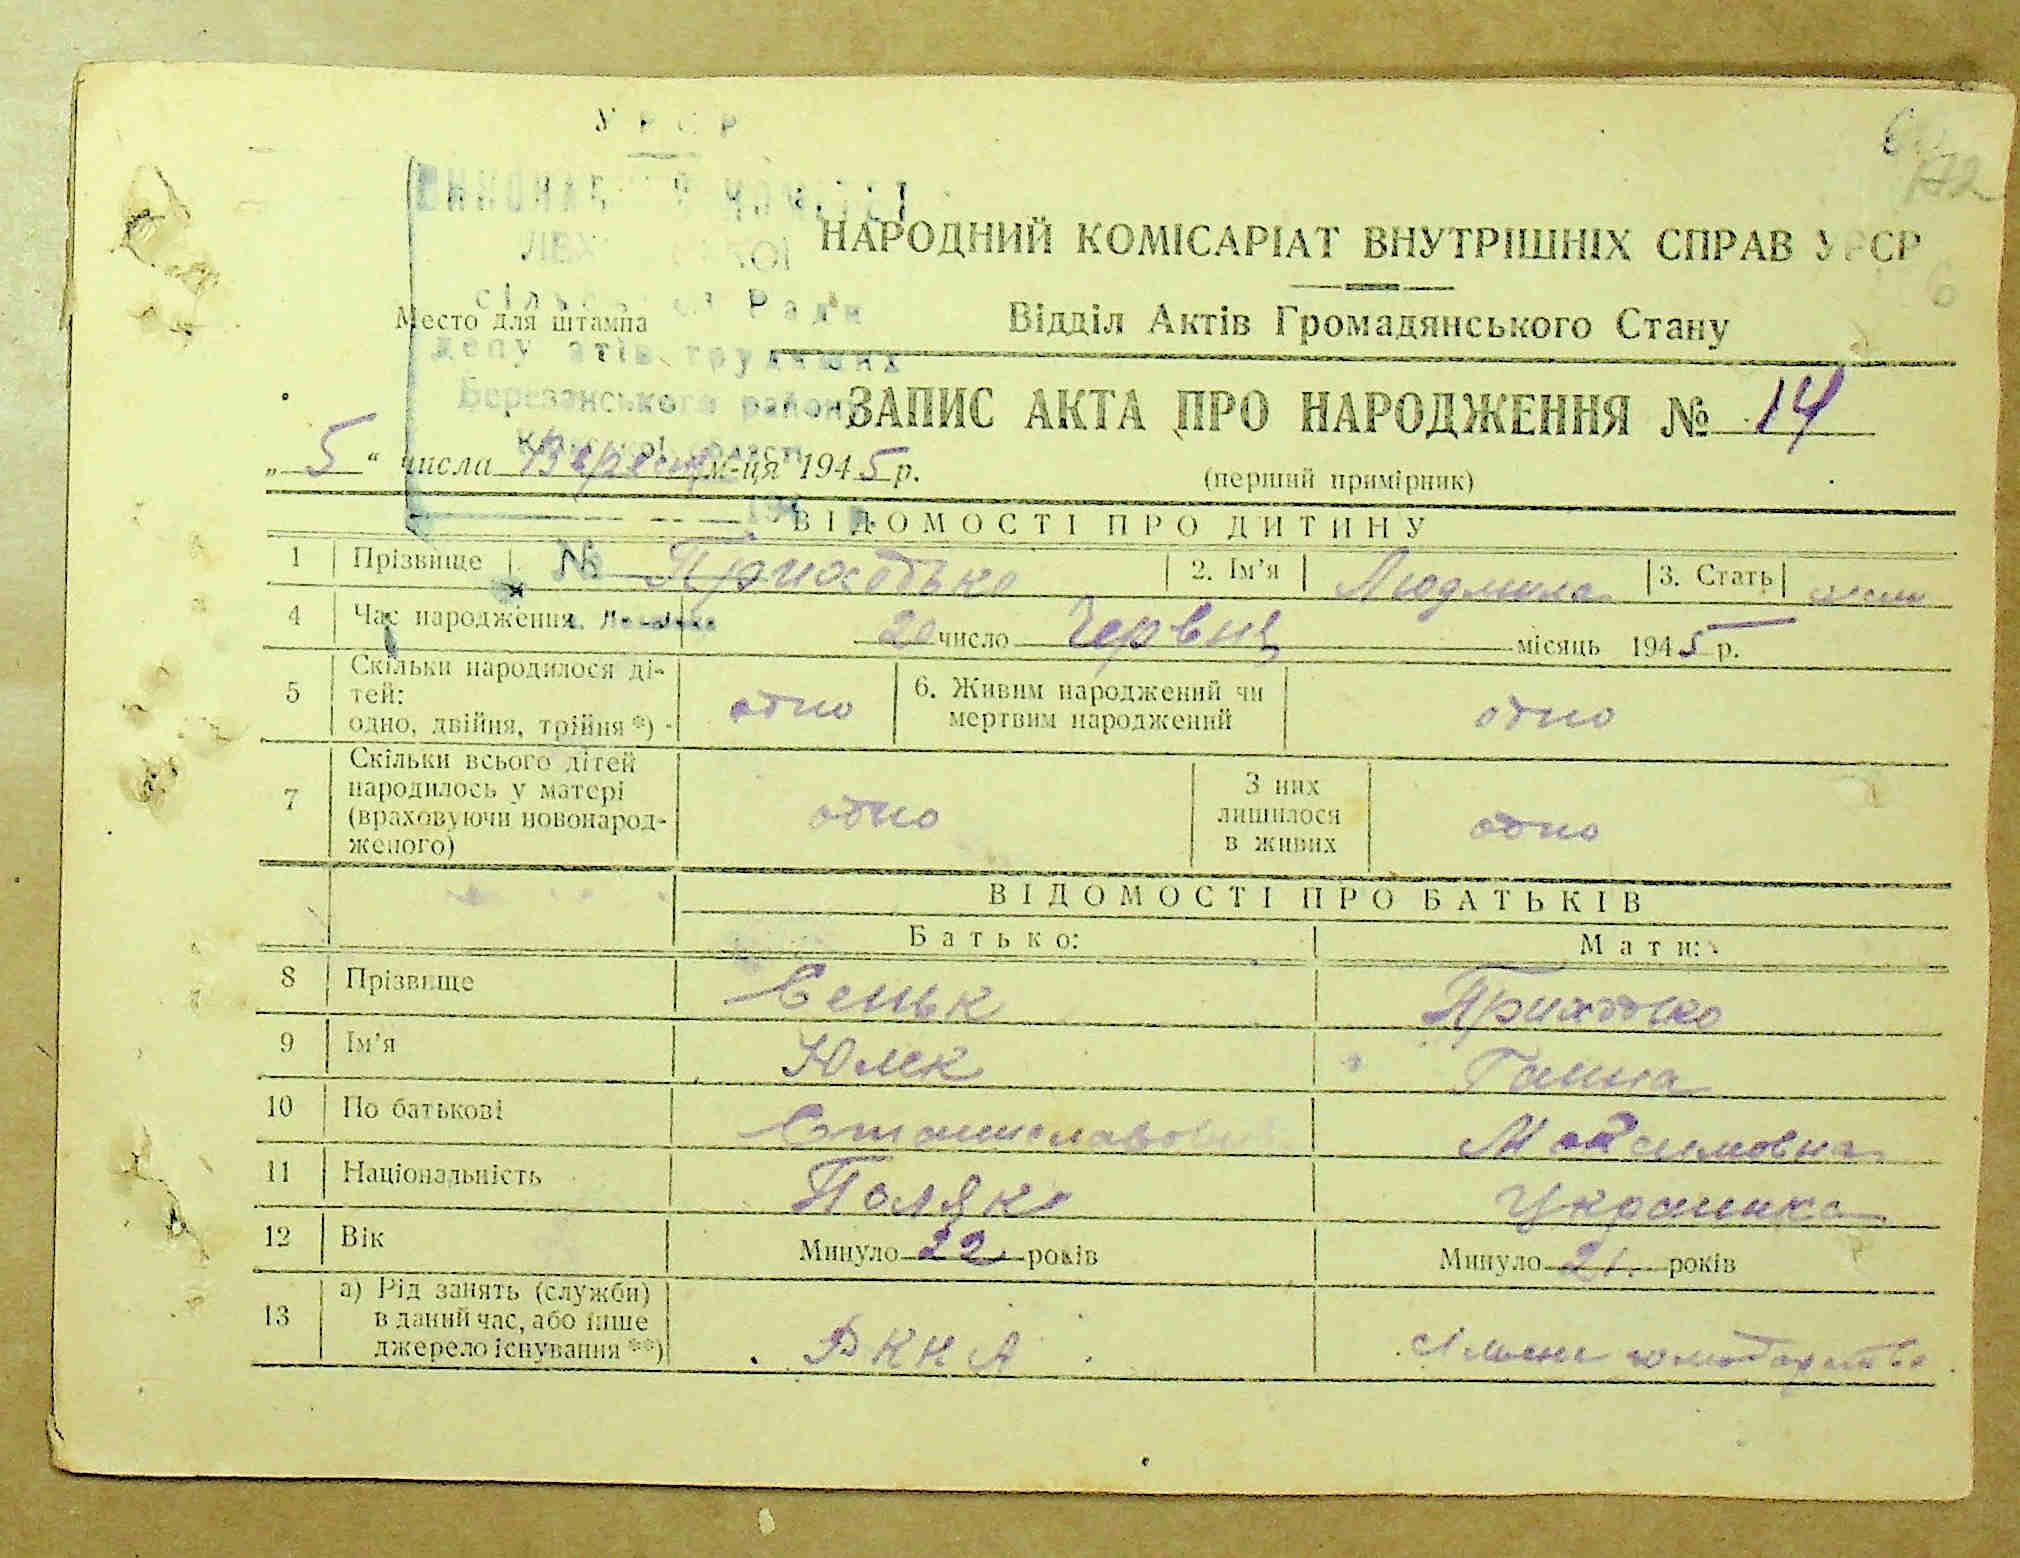 УРСР
НАРОДНИЙ КОМІСАРІАТ ВНУТРІШНІХ СПРАВ УРСР
Відділ Актів Громадянського Стану
Место для штампа
сільської Ради
депутатів трудящих
Березанського району
ЗАПИС АКТА ПРО НАРОДЖЕННЯ № 14
„5“ числа м-ця 1945 р.
(перший примірник)
ВІДОМОСТІ ПРО ДИТИНУ
1 Прізвище № Приходько 2. Ім’я Людмила 3. Стать
4 Час народження 20 число Червня місяць 1945 р.
5 Скільки народилося ді-
тей:
одно, двійня, трійня *) одно 6. Живим народжений чи
мертвим народжений одно
7 Скільки всього дітей
народилось у матері
(враховуючи новонарод-
женого) одно З них
лишилося
в живих одно
ВІДОМОСТІ ПРО БАТЬКІВ
Батько: Мати:
8 Прізвище Приходько
9 Ім’я Юлек Ганна
10 По батькові Станиславович Максимовна
11 Національність Поляк Украинка
12 Вік Минуло 22 років Минуло 21 років
13 а) Рід занять (служби)
в даний час, або інше
джерело існування **)